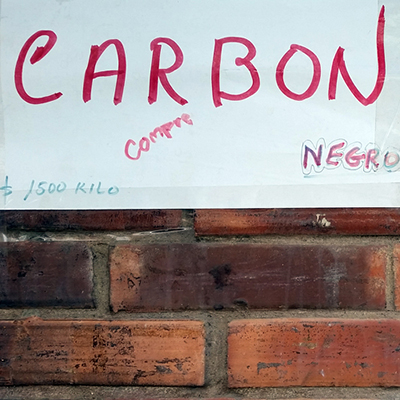 CARBON
COMPRE
NEGRO
$ 1500 KILO